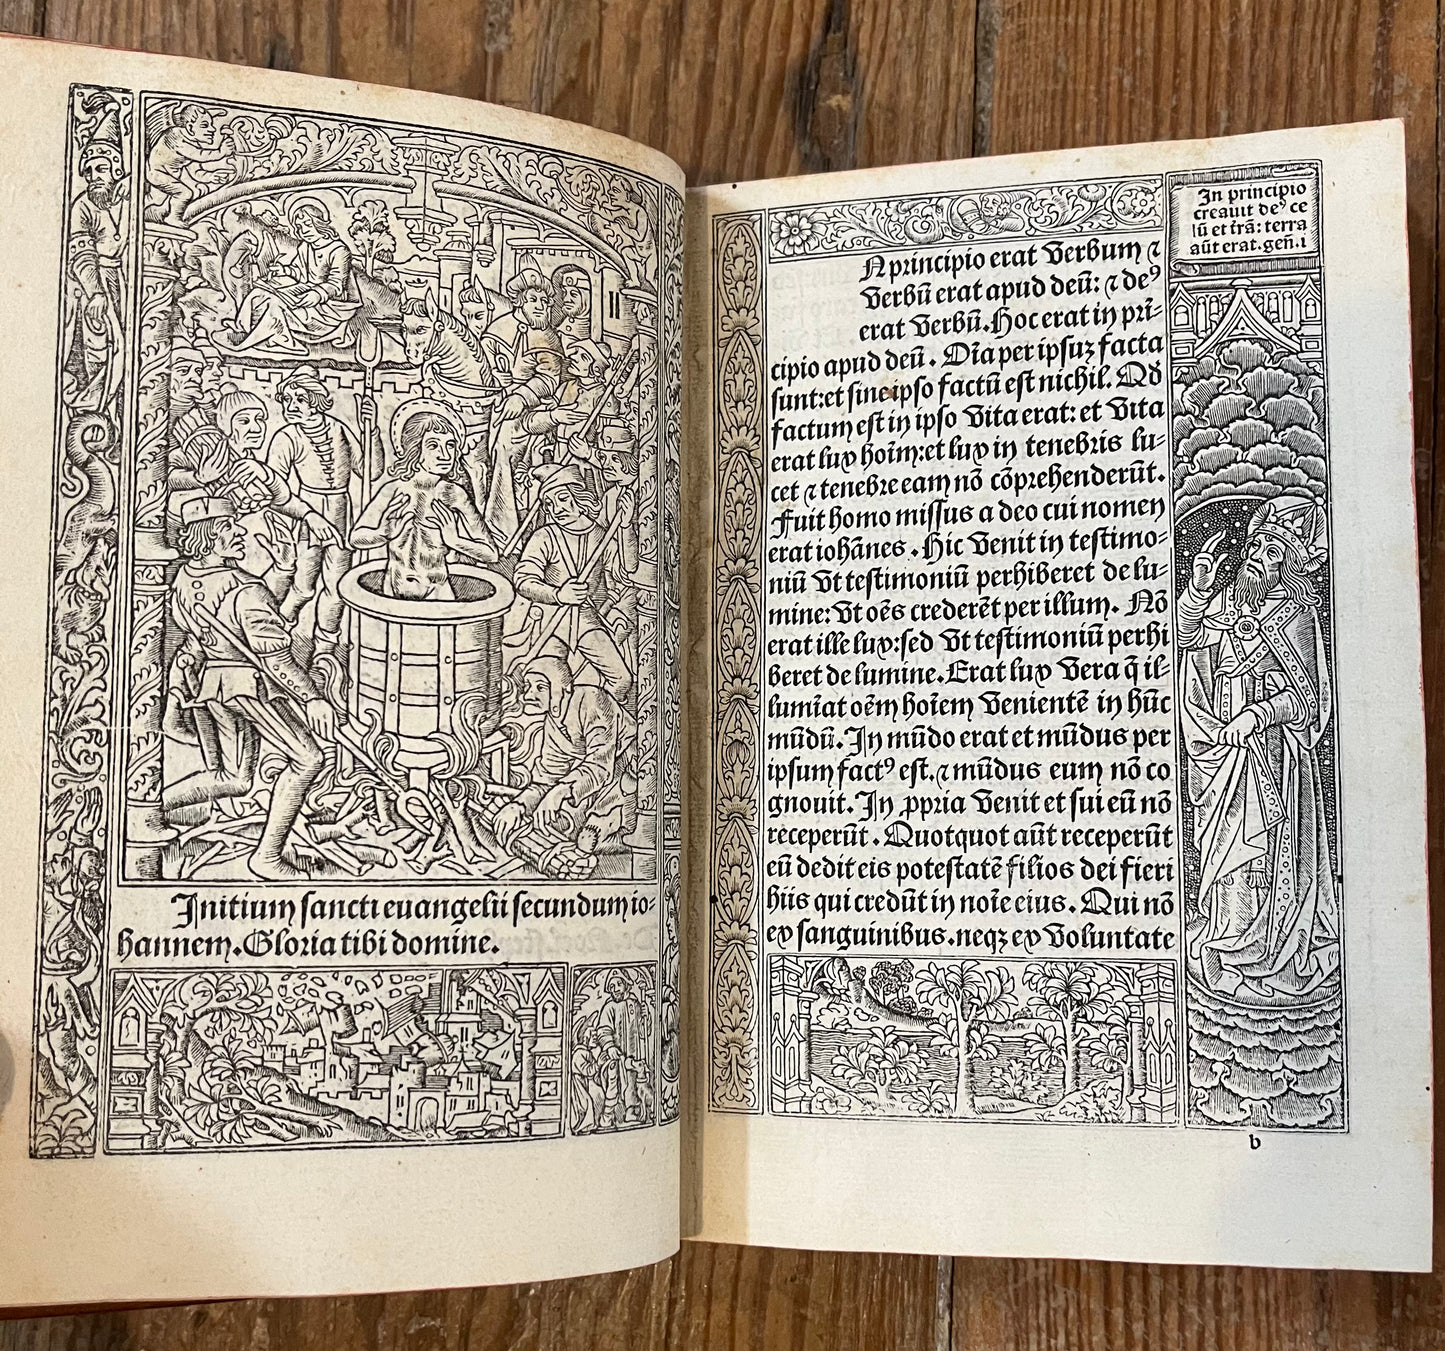 Initium sancti euangelii secundum io-
hannem. Gloria tibi domine.
In principio
creauit deꝰ ce
lū et trā: terra
aūt erat. geñ. i
N principio erat Verbum ⁊
Verbū erat apud deū: ⁊ deꝰ
erat Verbū. Hoc erat in pri-
cipio apud deū. Oīa per ipsuz facta
sunt: et sine ipso factū est nichil. Qď
factum est in ipso Vita erat: et Vita
erat lux hoīm: et lux in tenebris lu-
cet ⁊ tenebre eam nō cōprehenderūt.
Fuit homo missus a deo cui nomen
erat iohānes. Hic Venit in testimo-
niū Vt testimoniū perhiberet de lu-
mine: Vt oēs crederēt per illum. Nō
erat ille lux: sed Vt testimoniū perhi
beret de lumine. Erat lux Vera q̄ il-
lumīat oēm hoīem Venientē in hūc
mūdū. In mūdo erat et mūdus per
ipsum factꝰ est. ⁊ mūdus eum nō co
gnouit. In ꝓpria Venit et sui eū nō
receperūt. Quotquot aūt receperūt
eū dedit eis potestatē filios dei fieri
hiis qui credūt in noīe eius. Qui nō
ex sanguinibus. neqꝫ ex Voluntate
b